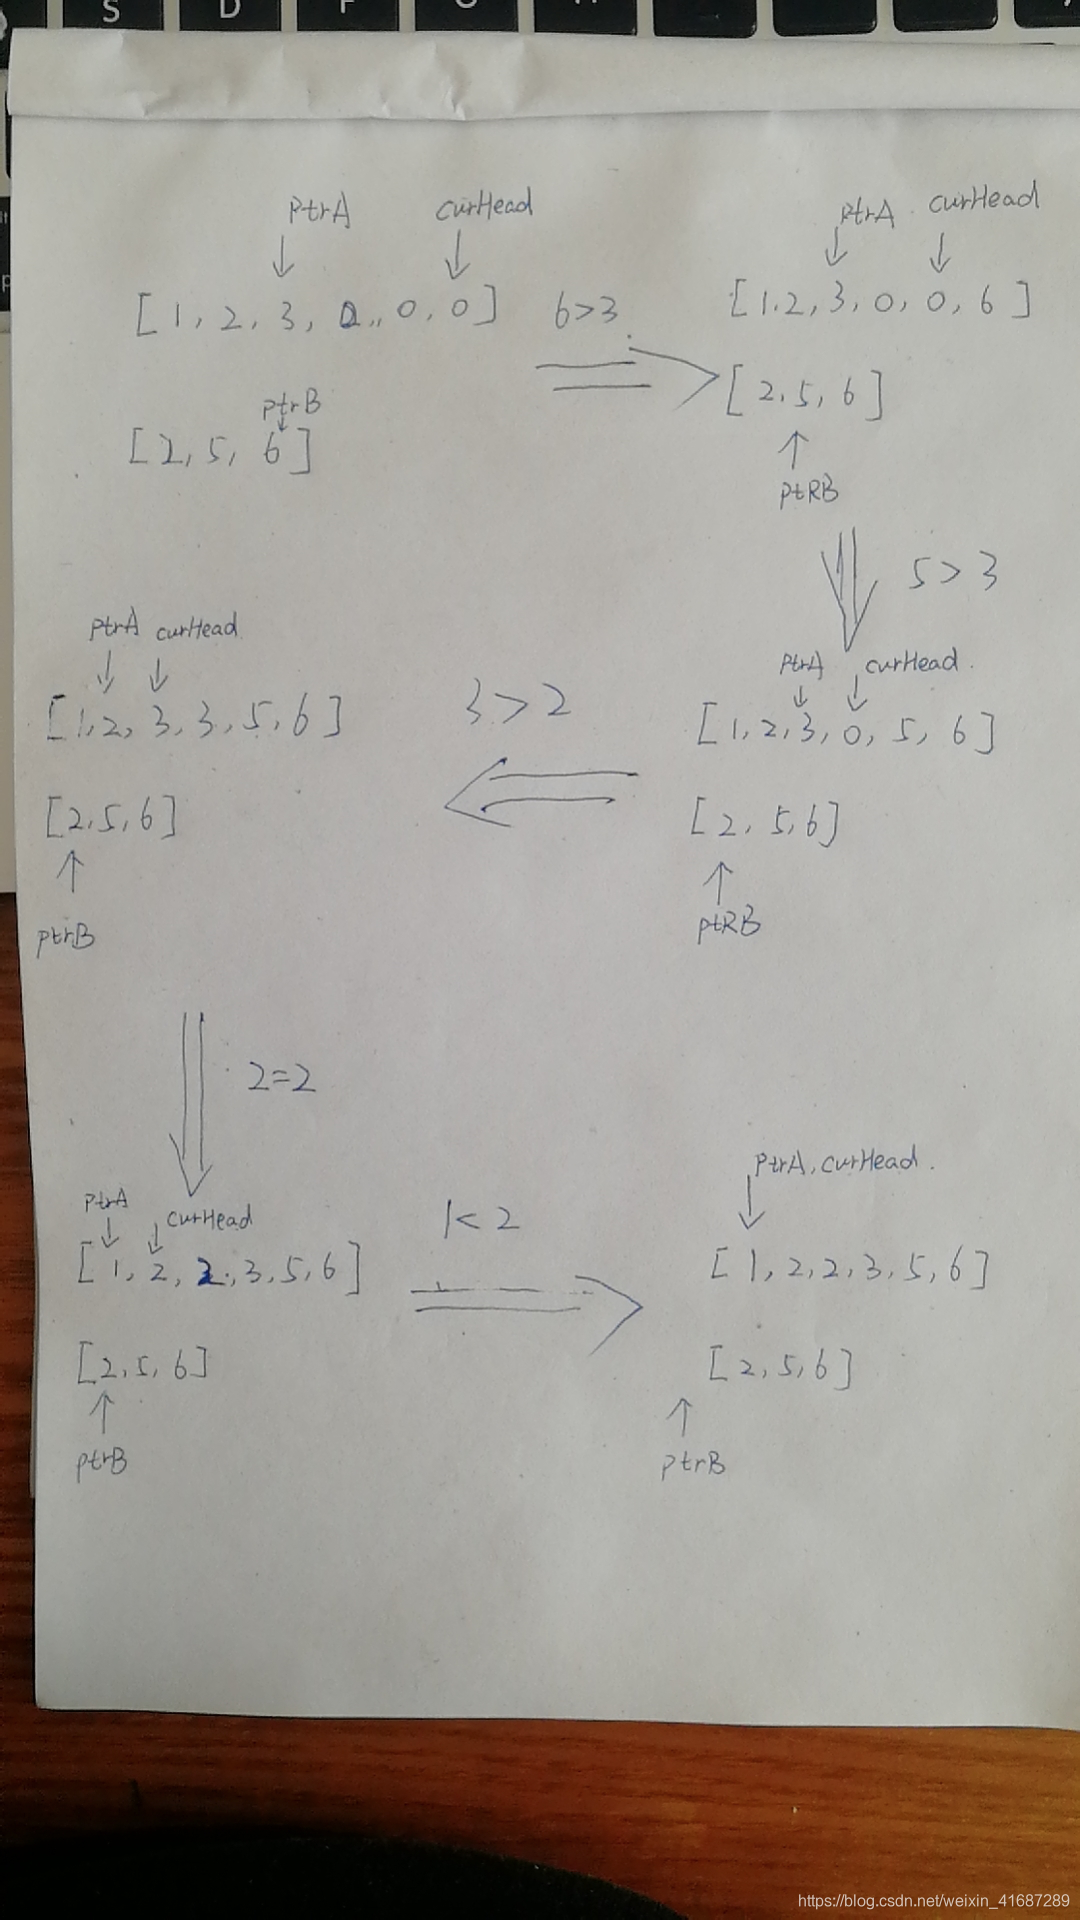 S D F
ptrA curHead
[1, 2, 3, 0,, 0, 0] 6>3
ptrB
[2, 5, 6]
ptrA curHead
[1.2, 3, 0, 0, 6]
[2, 5, 6]
ptRB
5 > 3
ptrA curHead.
[1, 2, 3, 0, 5, 6]
[2, 5, 6]
ptRB
3 > 2
ptrA curHead
[1, 2, 3, 3, 5, 6]
[2, 5, 6]
ptrB
2=2
ptrA curHead
[1, 2, 2, 3, 5, 6]
[2, 5, 6]
ptrB
1< 2
ptrA, curHead.
[1, 2, 2, 3, 5, 6]
[2, 5, 6]
ptrB
https://blog.csdn.net/weixin_41687289